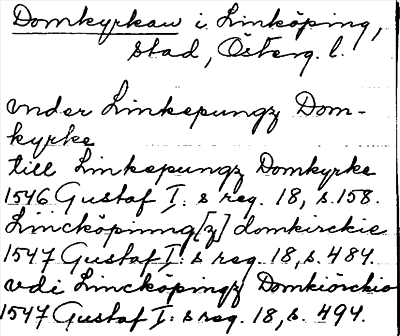 Domkyrkan i Linköping,
stad, Österg. l.
vnder Linkepungz Dom-
kyrke
till Linkepungz Domkyrke
1546 Gustaf I:s reg. 18, s. 158.
Lincköpinng[z] domkirckie
1547 Gustaf I:s reg. 18, s. 484.
vdi Lincköpingz Domkiörckio
1547 Gustaf I:s reg. 18, s. 494.